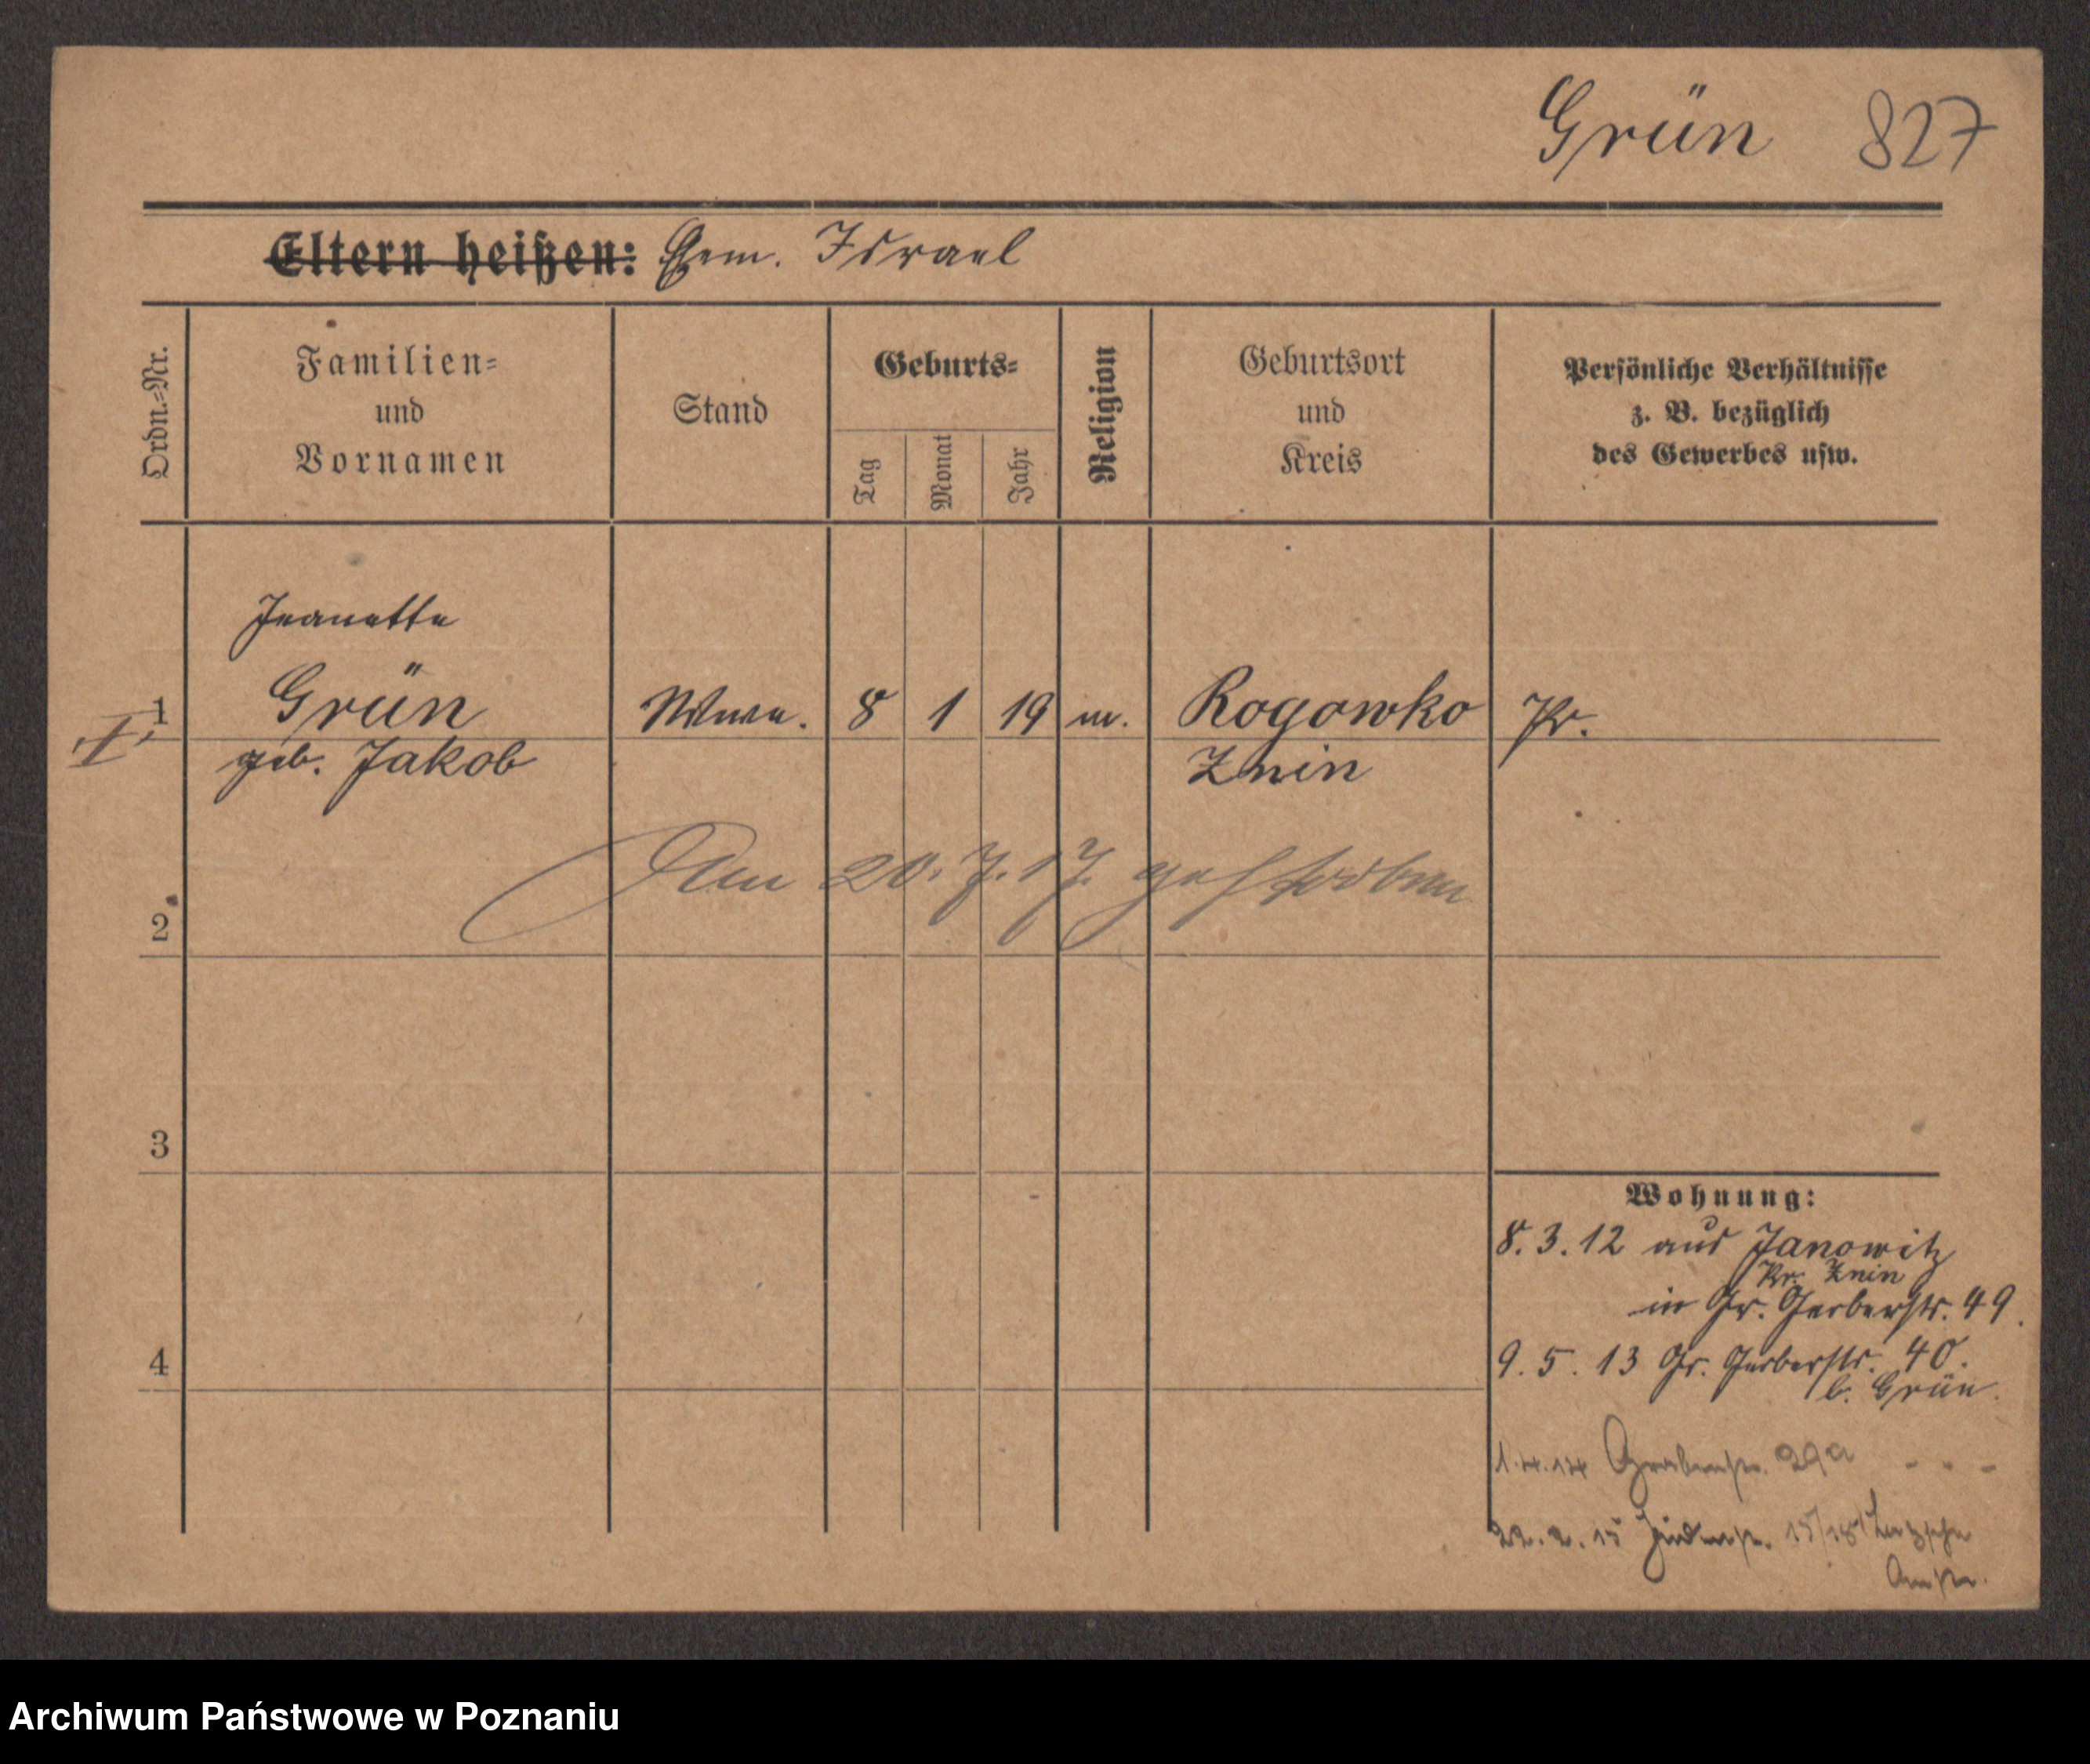 Grün 827
Eltern heißen: Gem. Israel
Ordn.-Nr.
Familien-
und
Vornamen
Stand
Geburts-
Tag
Monat
Jahr
Religion
Geburtsort
und
Kreis
Persönliche Verhältnisse
z. B. bezüglich
des Gewerbes usw.
Jeanette
I 1 Grün Wwe. 8 1 19 m. Rogowko Pr.
geb. Jakob Znin
Am 20. 7. 17. gestorben
2
3
Wohnung:
8. 3. 12 aus Janowitz
Kr. Znin
in Gr. Gerberstr. 49.
9. 5. 13 Gr. Gerberstr. 40.
b. Grün.
4
1.4.14 Grabenstr. 29a - - -
22. 2. 15 Judenstr. 15/18
Archiwum Państwowe w Poznaniu